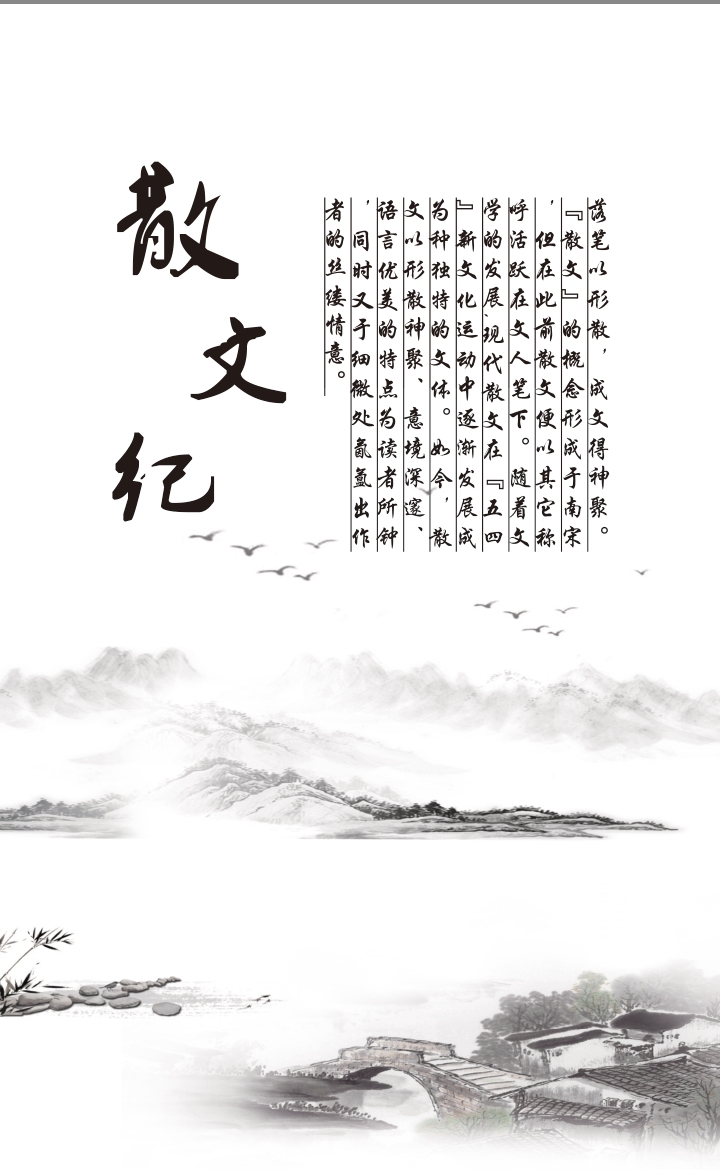 散文纪
落笔以形散，成文得神聚。
『散文』的概念形成于南宋
，但在此前散文便以其它称
呼活跃在文人笔下。随着文
学的发展，现代散文在『五四
』新文化运动中逐渐发展成
为种独特的文体。如今，散
文以形散神聚、意境深邃、
语言优美的特点为读者所钟
，同时又于细微处氤氲出作
者的丝缕情意。